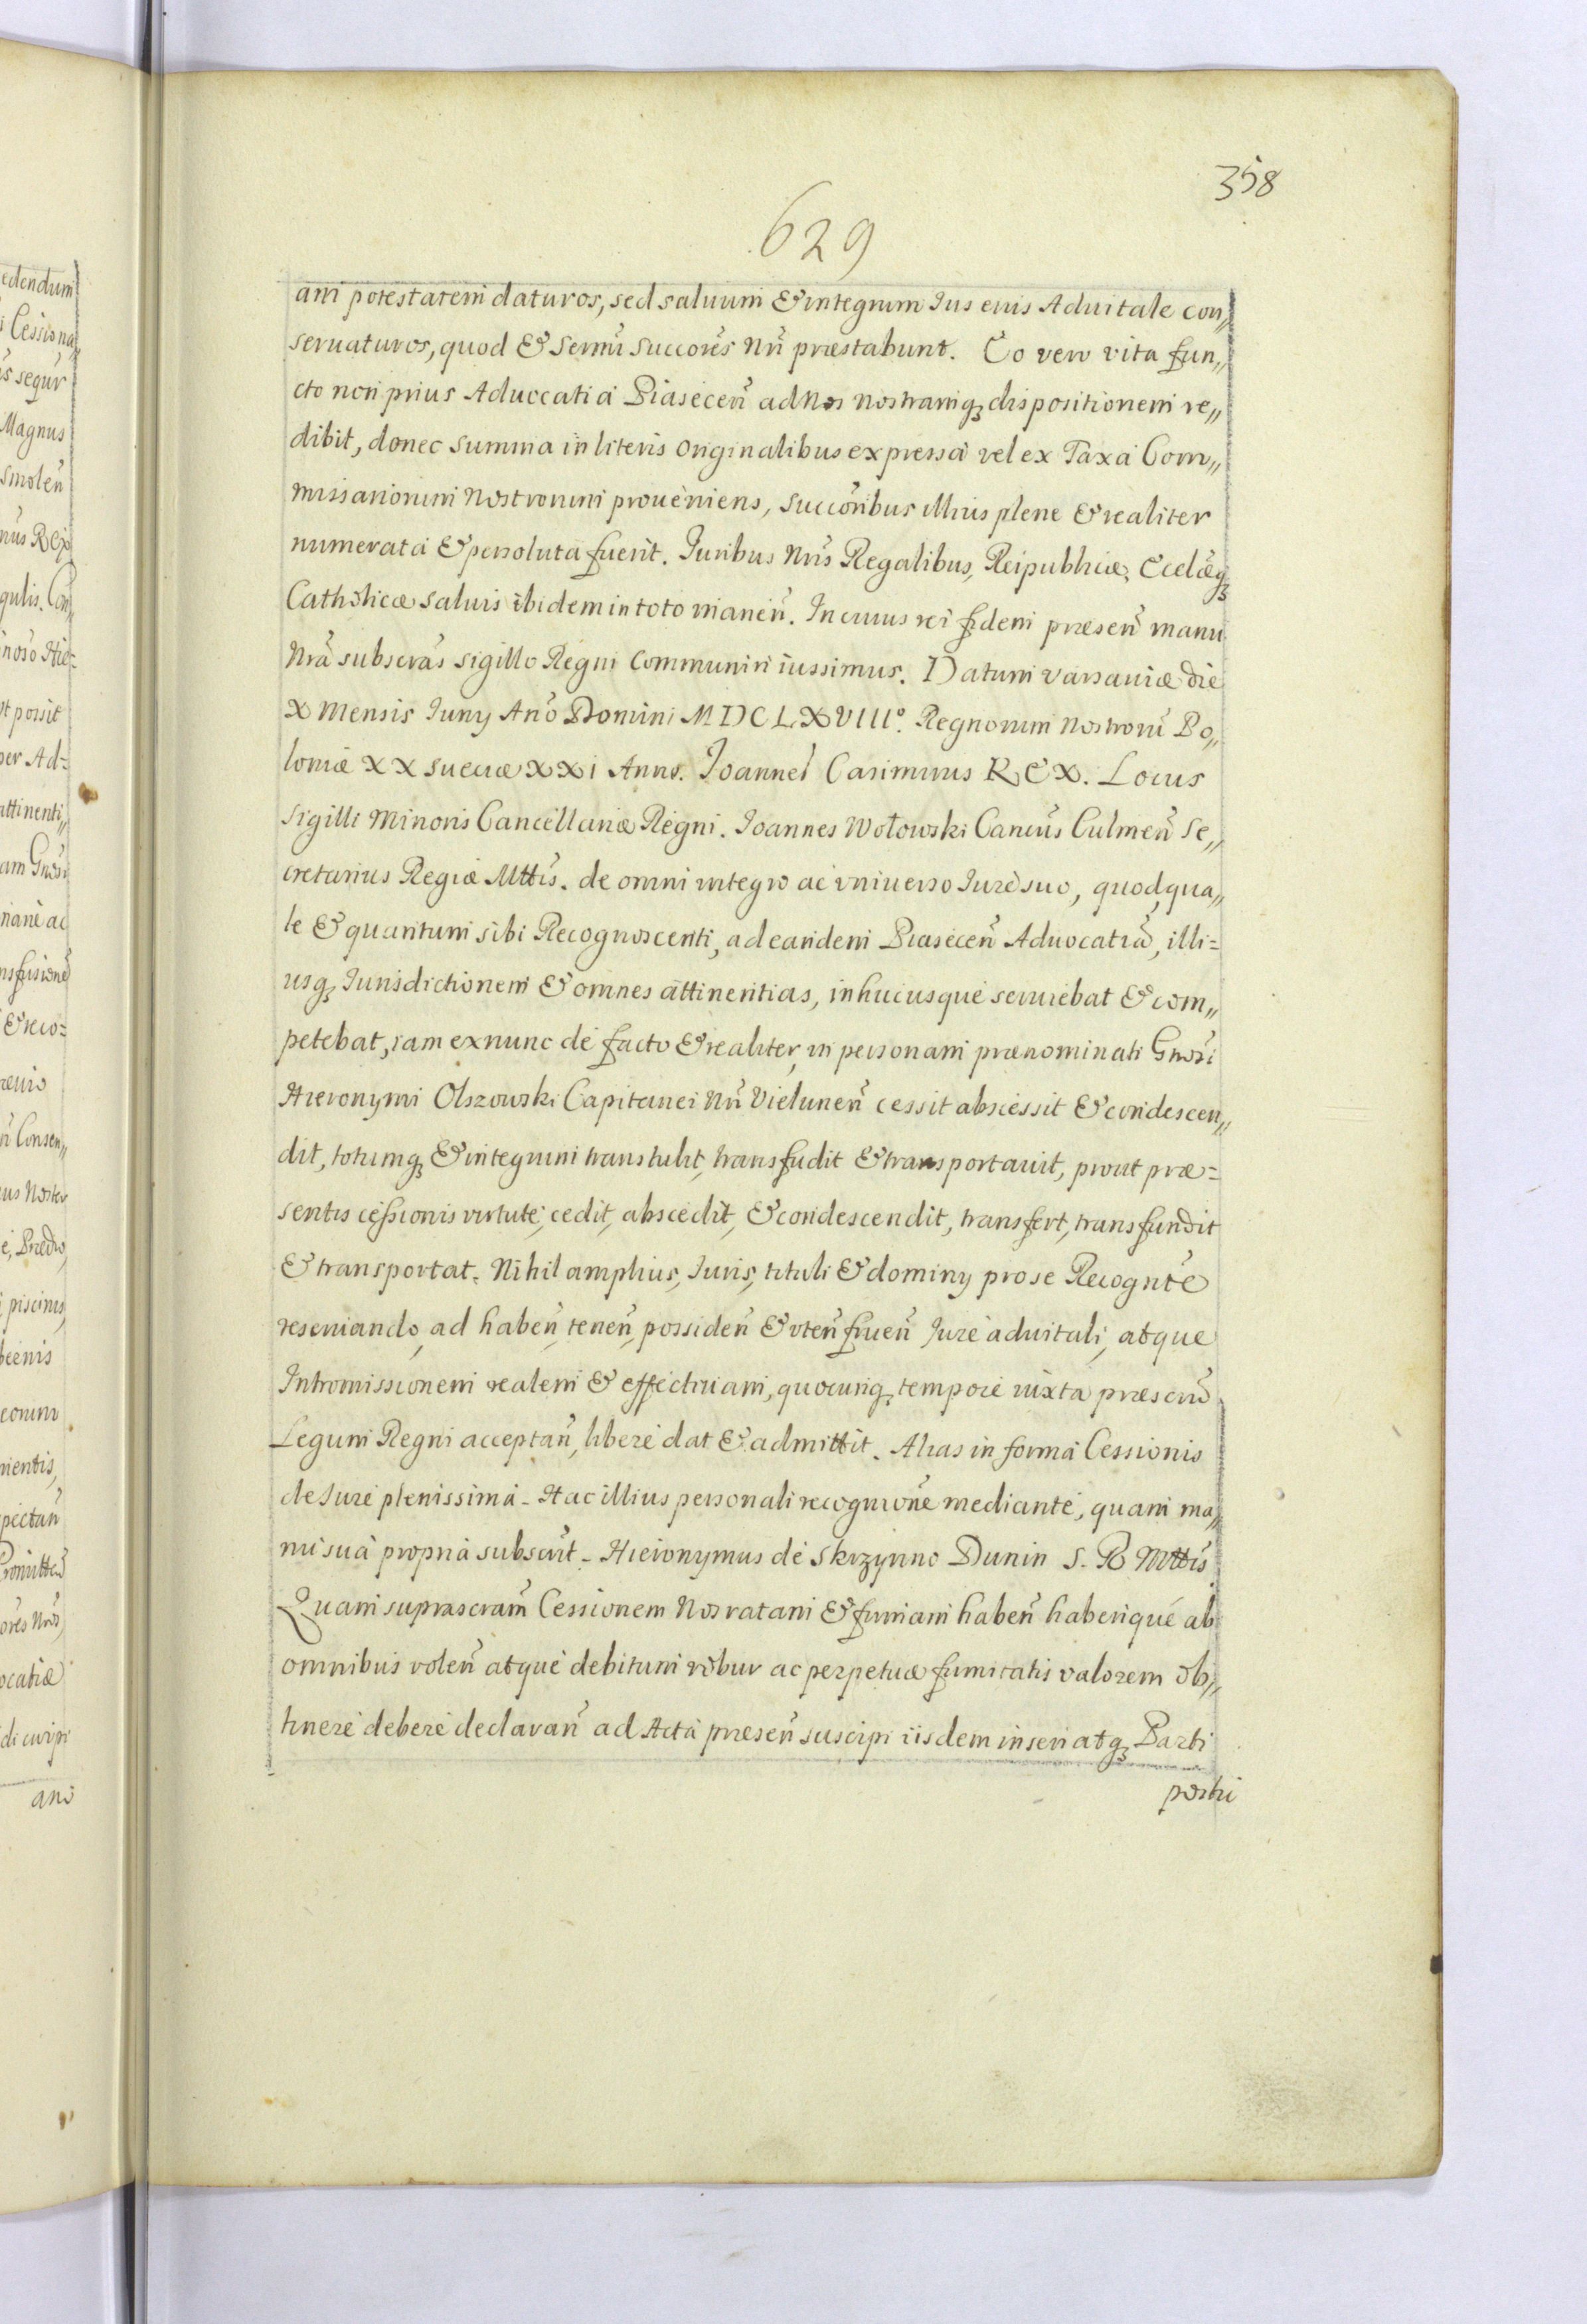 358
629
am potestatem daturos, sed saluum & integrum Ius eius Aduitale con„
seruaturos, quod & Sermi Succores Nri præstabunt. Eo vero vita fun„
cto non prius Aduocatia Piasecen ad Nos nostramq3 dispositionem re„
dibit, donec summa in literis originalibus expressa vel ex Taxa Com„
missariorum Nostrorum proueniens, succoribus illius plene & realiter
numerata & persoluta fuerit. Iuribus Nris Regalibus, Reipublicæ, Ecclæq3
Catholicæ saluis ibidem in toto manen. In cuius rei fidem præsen manu
Nra subscras sigillo Regni communiri iussimus. Datum Varsauiæ die
X Mensis Iuny Ano Domini MDCLXVIII⁰. Regnorum Nostroru Po„
loniæ XX Sueciæ XXI Anno. Ioannes Casimirus REX. Locus
Sigilli Minoris Cancellariæ Regni. Ioannes Wołowski Cancus Culmen Se„
cretarius Regiæ Mttis. de omni integro ac vniuerso Iure suo, quod, qua„
le & quantum sibi Recognoscenti, ad eandem Piasecen Aduocatia, illi=
usq3 Iurisdictionem & omnes attinentias, inhucusque seruiebat & com„
petebat, iam exnunc de facto & realiter, in personam prænominati Gnosi
Hieronymi Olszowski Capitanei Nri Vielunen cessit abscessit & condescen„
dit, totumq3 & integrum transtulit, transfudit & transportauit, prout præ=
sentis cessionis virtute, cedit, abscedit, & condescendit, transfert, transfundit
& transportat. Nihil amplius, Iuris, tituli & dominy pro se Recognte
reseruando, ad haben, tenen, possiden & vten fruen Iure aduitali, atque
Intromissionem realem & effectiuam, quocunq3 tempore iuxta præscru
Legum Regni acceptan, libere dat & admittit. Alias in forma Cessionis
de Iure plenissima. Hac illius personali recognione mediante, quam ma„
nu sua propria subscrit. Hieronymus de Skrzynno Dunin S. R Mttis
Quam suprascram Cessionem Nos ratam & firmam haben haberique ab
omnibus volen atque debitum robur ac perpetuæ firmitatis valorem ob„
tinere debere declaran ad Acta præsen suscipi iisdem inseri atq3 Parti
postu